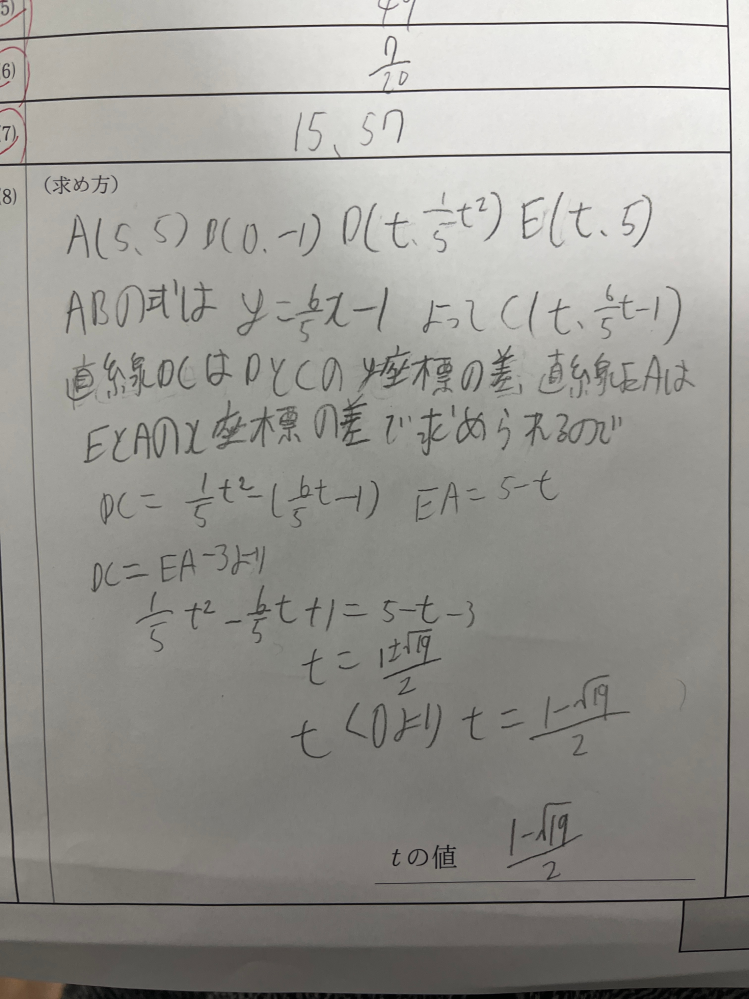 5)
49
(6)
7/20
(7)
15、57
(8)
(求め方)
A(5、5) B(0、-1) D(t、1/5t²) E(t、5)
ABの式は y=6/5x-1 よって C(t、6/5t-1)
直線DCはDとCのy座標の差、直線EAは
EとAのx座標の差で求められるので
DC= 1/5t²-(6/5t-1) EA=5-t
DC=EA-3より
1/5t²-6/5t+1=5-t-3
t=1±√19/2
t<0より t=1-√19/2
tの値 1-√19/2